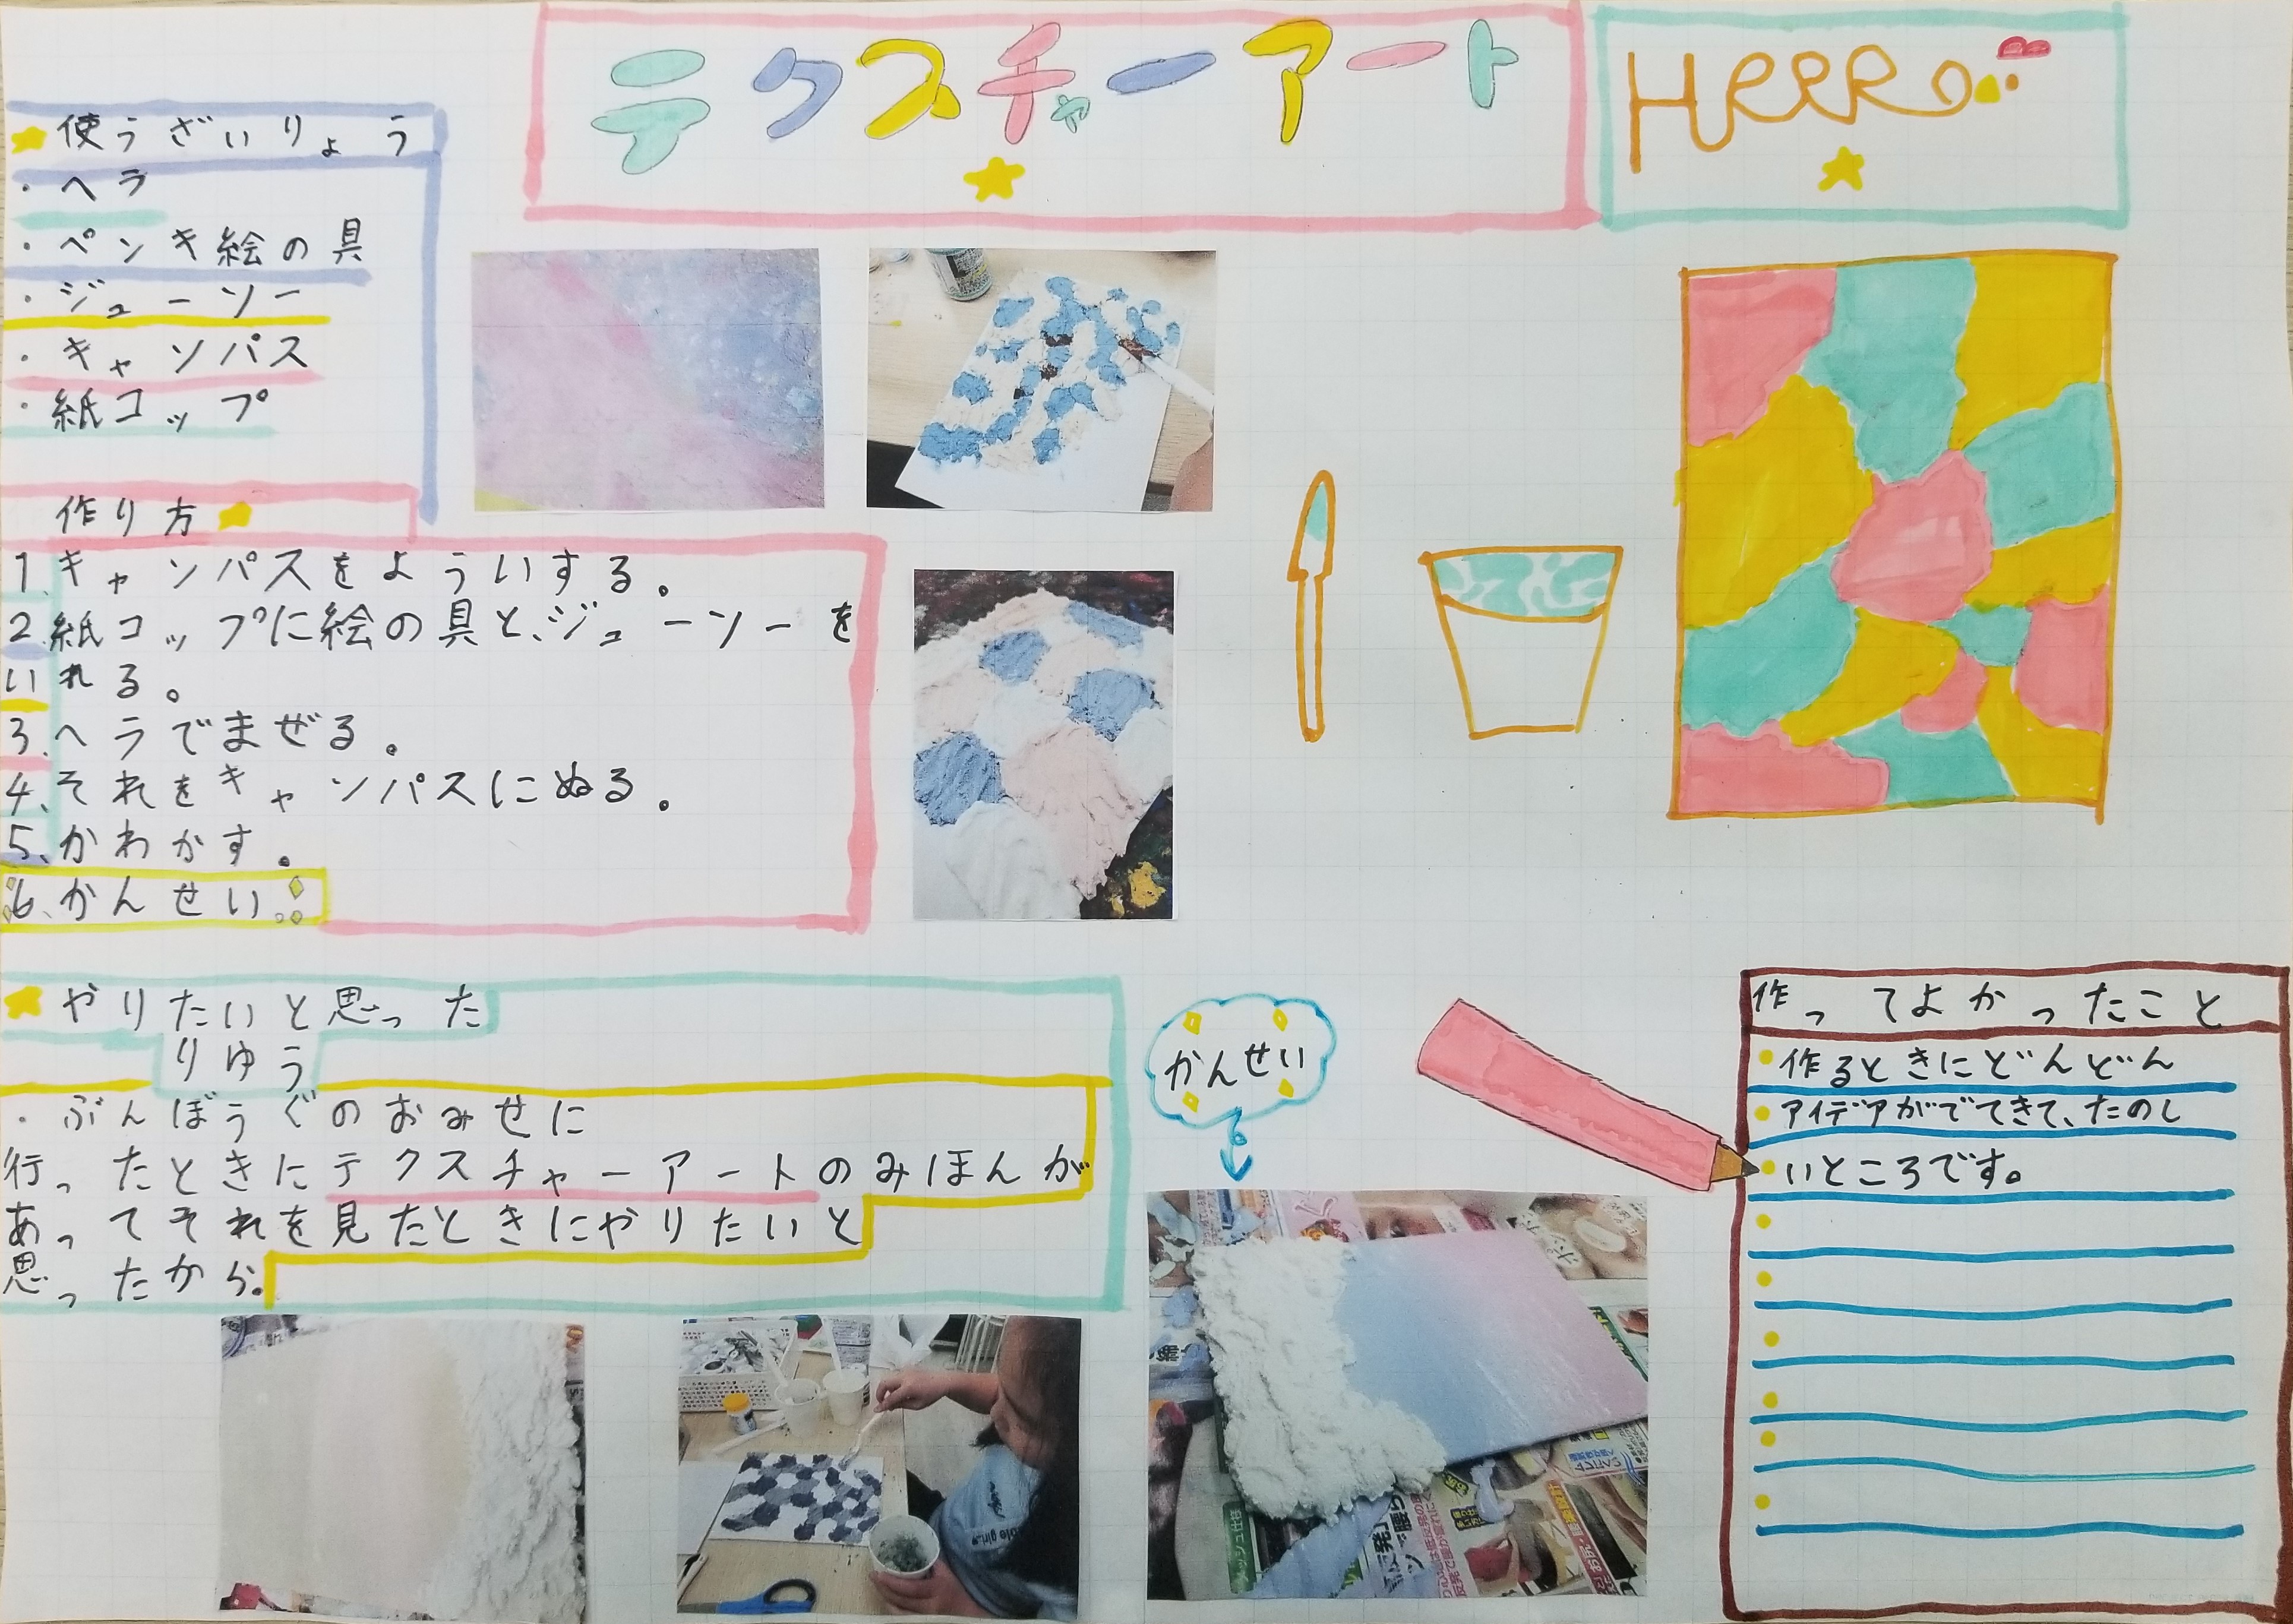 テクスチャーアート
使うざいりょう
・ヘラ
・ペンキ絵の具
・ジューソー
・キャンパス
・紙コップ
作り方
1.キャンパスをよういする。
2.紙コップに絵の具と、ジューソーを
いれる。
3.ヘラでまぜる。
4.それをキャンパスにぬる。
5.かわかす。
6.かんせい。
やりたいと思った
りゆう
・ぶんぼうぐのおみせに
行ったときにテクスチャーアートのみほんが
あってそれを見たときにやりたいと
思ったから。
かんせい
作ってよかったこと
作るときにどんどん
アイデアがでてきて、たのし
いところです。